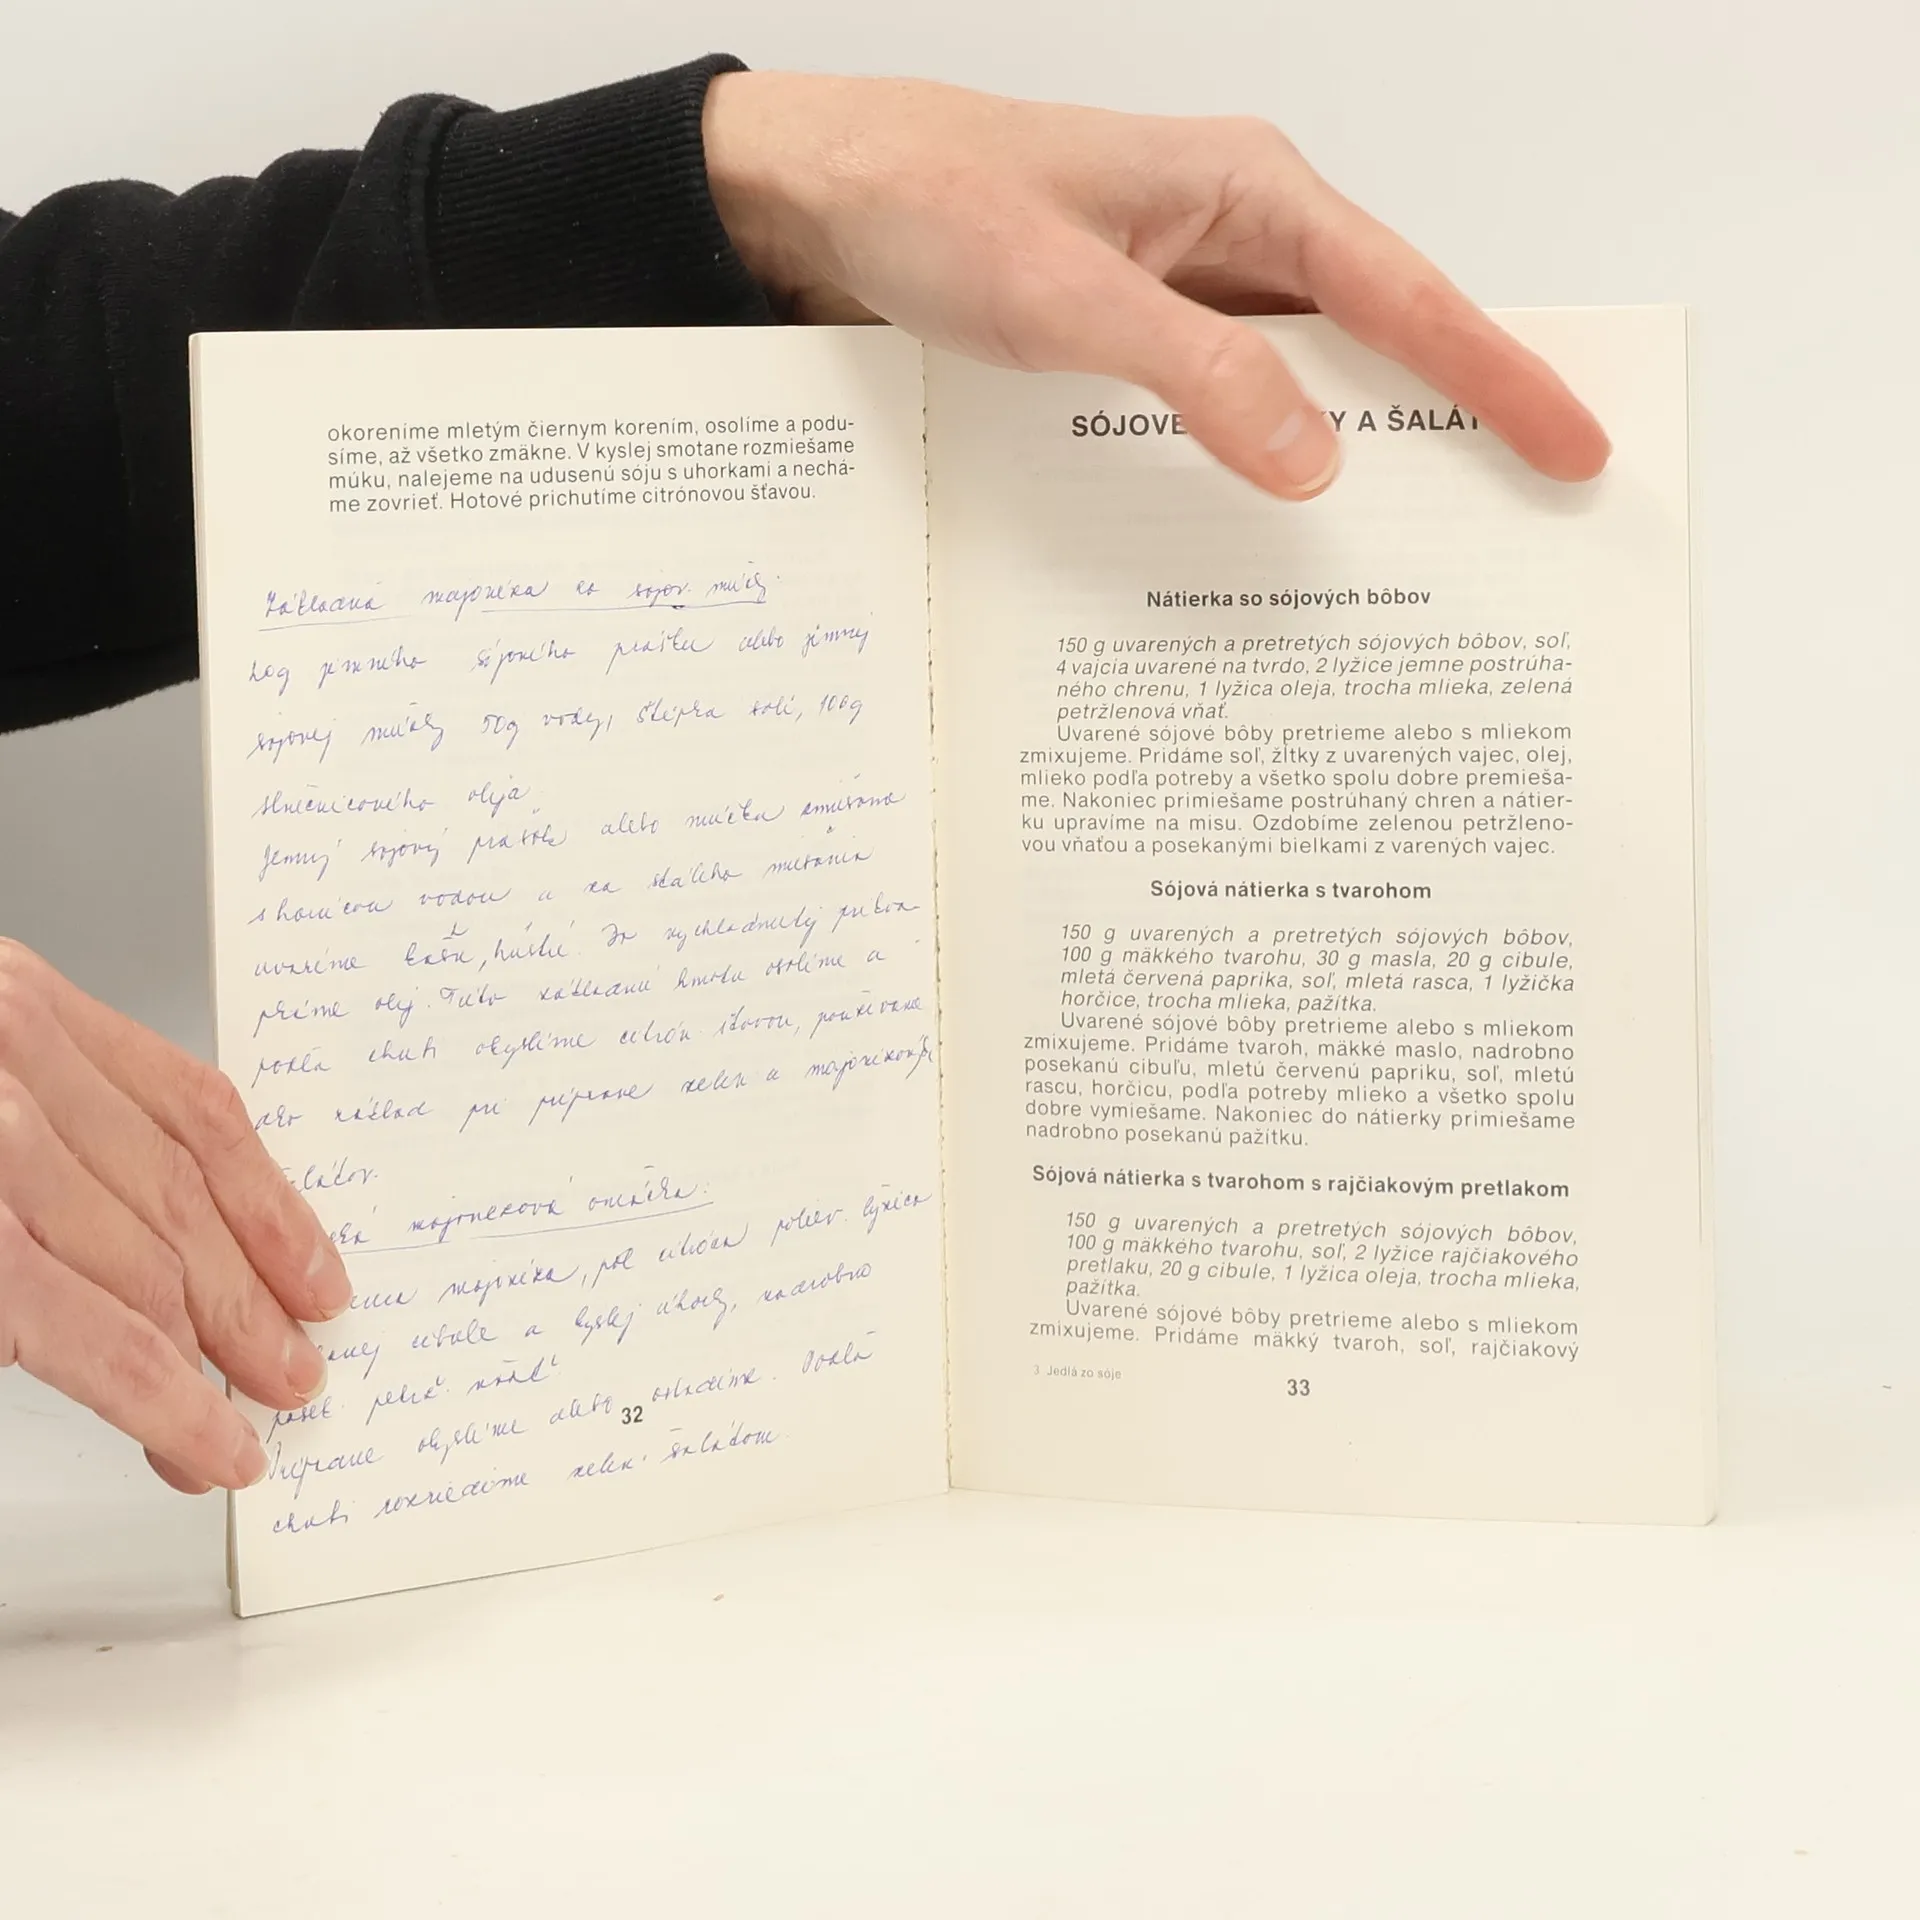 okoreníme mletým čiernym korením, osolíme a podu-
síme, až všetko zmäkne. V kyslej smotane rozmiešame
múku, nalejeme na udusenú sóju s uhorkami a nechá-
me zovrieť. Hotové prichutíme citrónovou šťavou.
Základná majonéza zo sójov. múčky.
20g jemného sójového prášku alebo jemnej
sójovej múčky 50g vody, štipka soli, 100g
slnečnicového oleja
Jemný sójový prášok alebo múčku zmiešame
s horúcou vodou a za stáleho miešania
uvaríme kašu, hustú. Do vychladnutej prikva-
pkáme olej. Túto základnú hmotu osolíme a
podľa chuti okyslíme citrón. šťavou, používame
ako základ pri príprave zelen. a majonézových
šalátov.
majonézová omáčka:
majonéza, pol citróna, poliev. lyžica
cibule a kyslej uhorky, nadrobno
posek. petrž. vňať
okyslíme alebo osladíme. Podľa
chuti rozriedime zelen. šalátom.
32
SÓJOVÉ A
Nátierka so sójových bôbov
150 g uvarených a pretretých sójových bôbov, soľ,
4 vajcia uvarené na tvrdo, 2 lyžice jemne postrúha-
ného chrenu, 1 lyžica oleja, trocha mlieka, zelená
petržlenová vňať.
Uvarené sójové bôby pretrieme alebo s mliekom
zmixujeme. Pridáme soľ, žĺtky z uvarených vajec, olej,
mlieko podľa potreby a všetko spolu dobre premieša-
me. Nakoniec primiešame postrúhaný chren a nátier-
ku upravíme na misu. Ozdobíme zelenou petržleno-
vou vňaťou a posekanými bielkami z varených vajec.
Sójová nátierka s tvarohom
150 g uvarených a pretretých sójových bôbov,
100 g mäkkého tvarohu, 30 g masla, 20 g cibule,
mletá červená paprika, soľ, mletá rasca, 1 lyžička
horčice, trocha mlieka, pažítka.
Uvarené sójové bôby pretrieme alebo s mliekom
zmixujeme. Pridáme tvaroh, mäkké maslo, nadrobno
posekanú cibuľu, mletú červenú papriku, soľ, mletú
rascu, horčicu, podľa potreby mlieko a všetko spolu
dobre vymiešame. Nakoniec do nátierky primiešame
nadrobno posekanú pažítku.
Sójová nátierka s tvarohom s rajčiakovým pretlakom
150 g uvarených a pretretých sójových bôbov,
100 g mäkkého tvarohu, soľ, 2 lyžice rajčiakového
pretlaku, 20 g cibule, 1 lyžica oleja, trocha mlieka,
pažítka.
Uvarené sójové bôby pretrieme alebo s mliekom
zmixujeme. Pridáme mäkký tvaroh, soľ, rajčiakový
3 Jedlá zo sóje
33